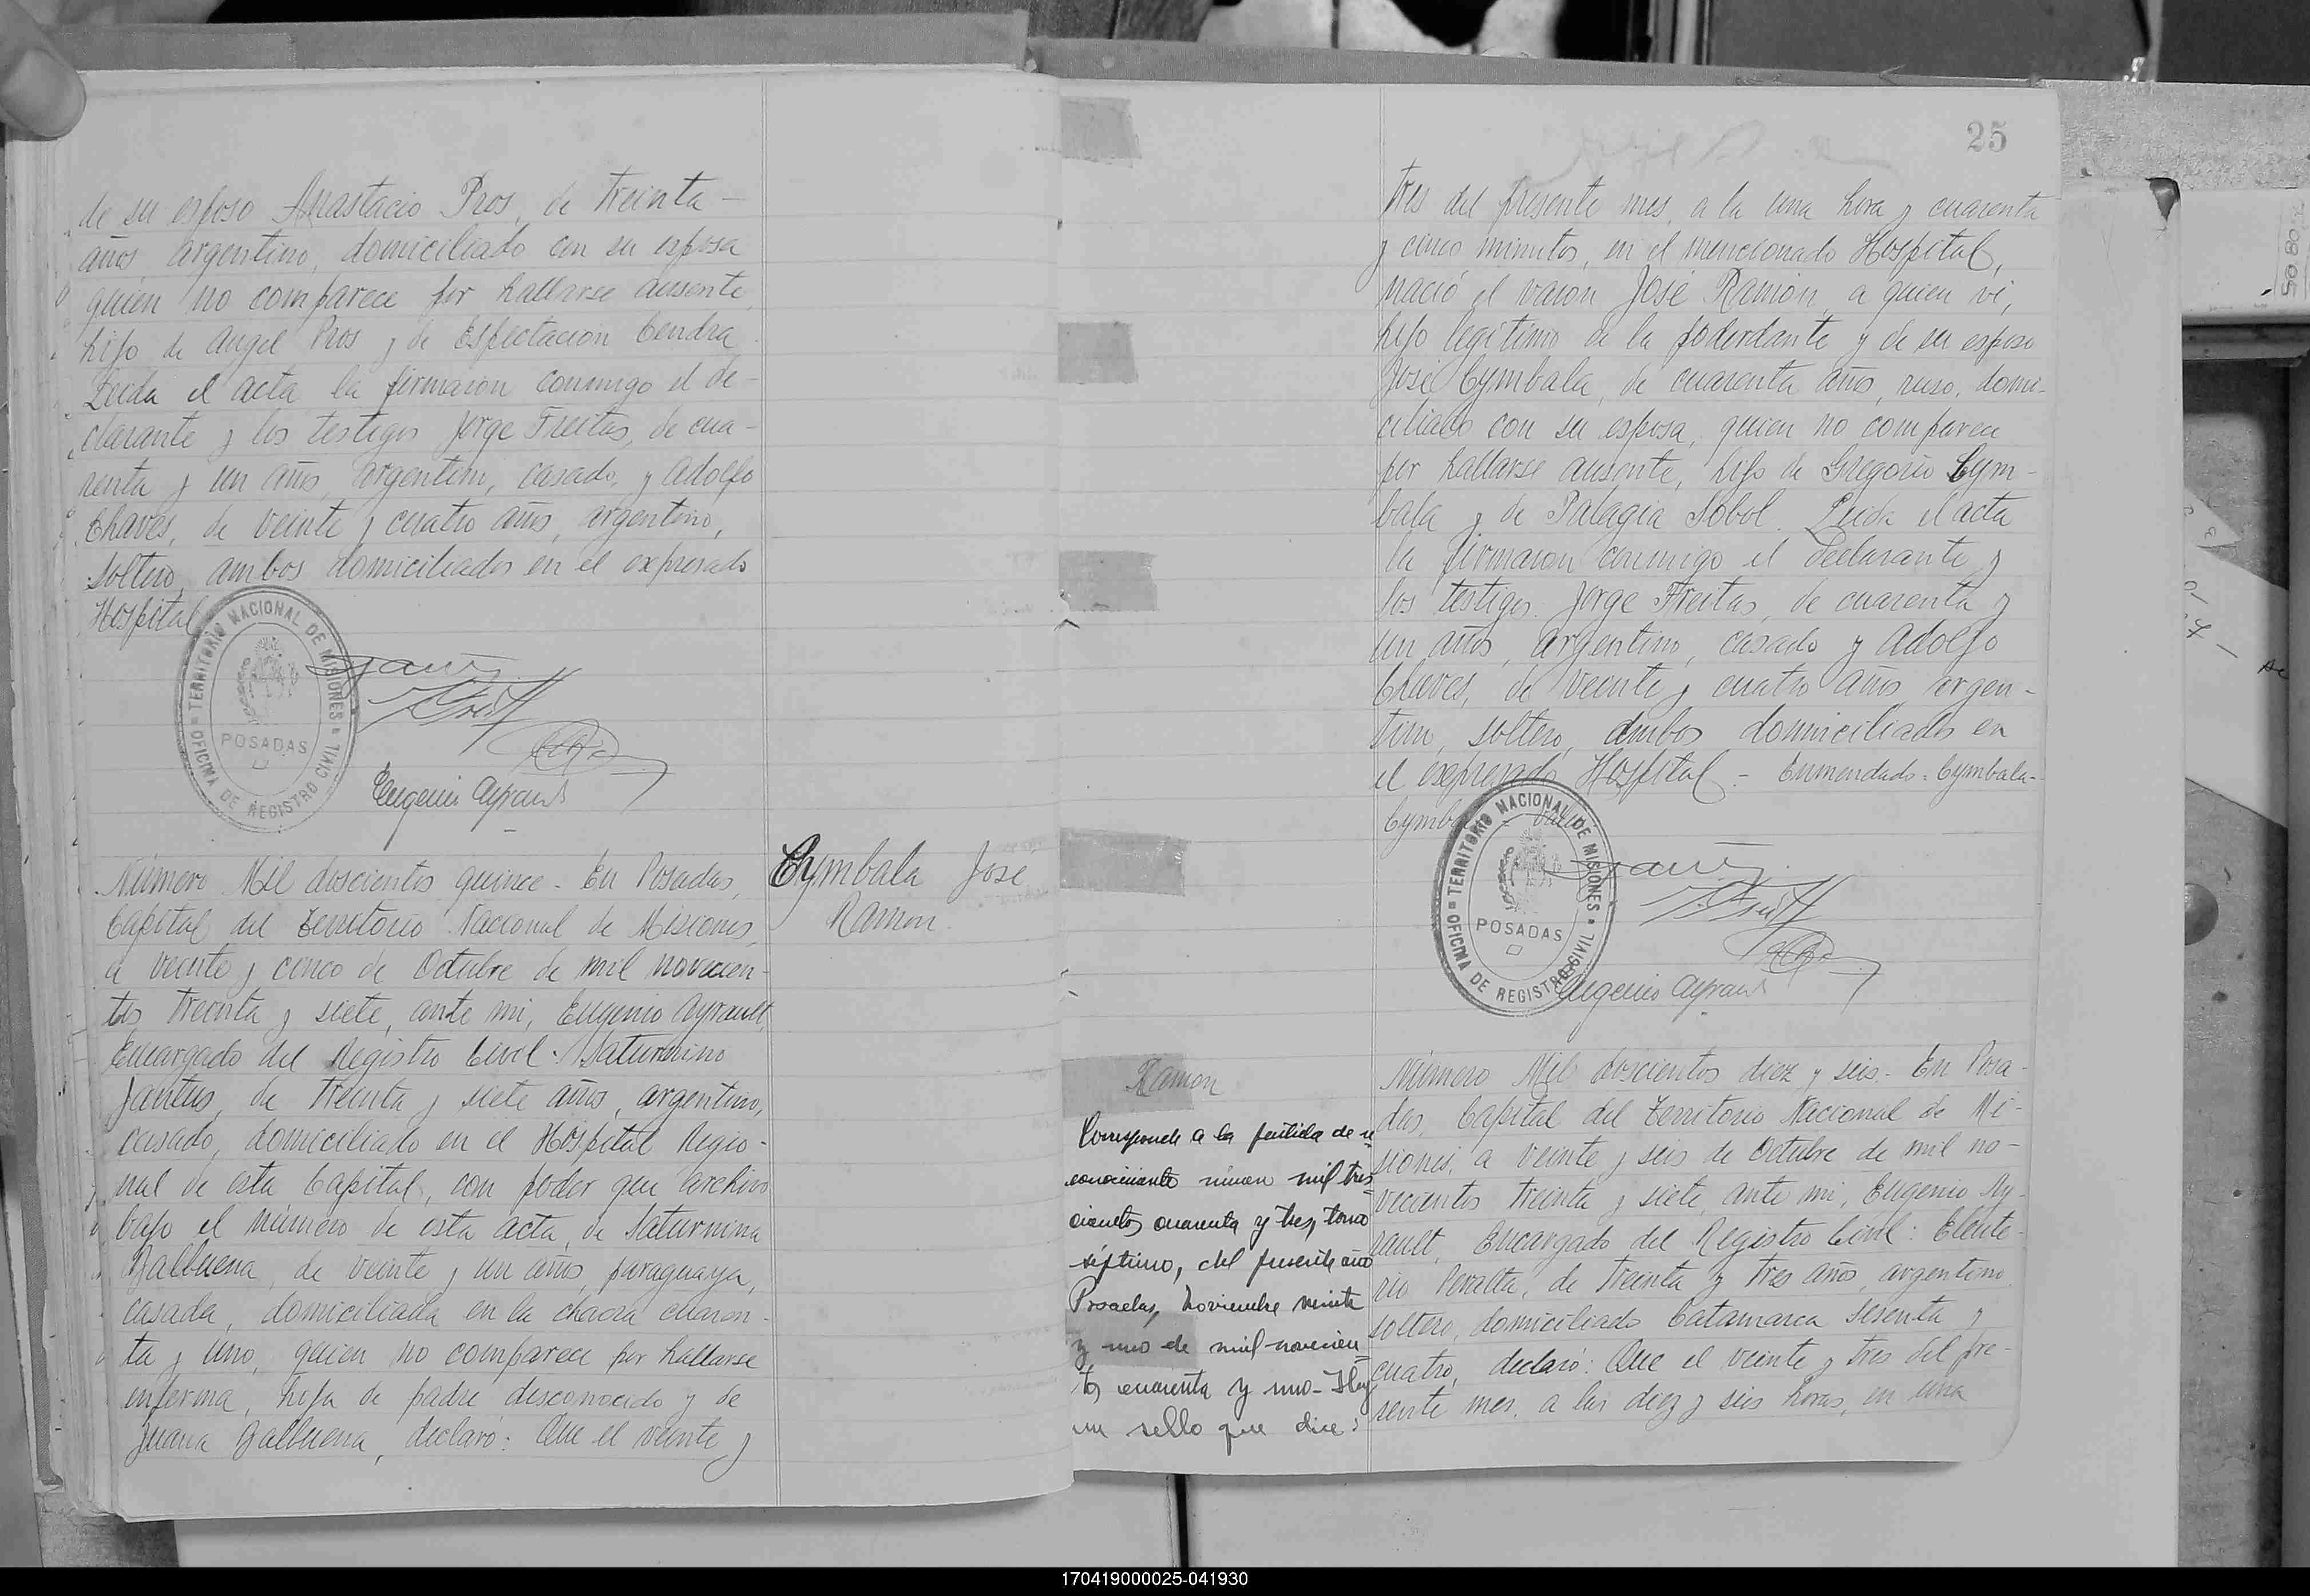 de su esposo Anastacio Pros, de treinta -
años, argentino, domiciliado con su esposa
quien no comparece por hallarse ausente,
hijo de Angel Pros y de Espectación Cendra.
Leida el acta la firmaron conmigo el de-
clarante y los testigos Jorge Freitas, de cua-
renta y un años, argentino, casado, y Adolfo
Chaves, de veinte y cuatro años, argentino,
soltero, ambos domiciliados en el expresado
Hospital
TERRITORIO NACIONAL DE MISIONES
POSADAS
OFICINA DE REGISTRO CIVIL
Eugenio Ayrault
Número Mil doscientos quince - En Posadas,
Capital del Territorio Nacional de Misiones,
a veinte y cinco de Octubre de mil novecien-
tos treinta y siete, ante mi, Eugenio Ayrault,
Encargado del Registro Civil: Saturnino
Jantus, de treinta y siete años, argentino,
casado, domiciliado en el Hospital Regio-
nal de esta Capital, con poder que archivo
bajo el número de esta acta, de Saturnina
Balbuena, de veinte y un años, paraguaya,
casada, domiciliada en la chacra cuaren-
ta y uno, quien no comparece por hallarse
enferma, hija de padre desconocido y de
Juana Balbuena, declaró: Que el veinte y
Cymbala José
Ramon
25
tres del presente mes, a la una hora y cuarenta
y cinco minutos, en el mencionado Hospital,
nació el varon José Ramón, a quien vi,
hijo legitimo de la poderdante y de su esposo
José Cymbala, de cuarenta años, ruso, domi-
ciliado con su esposa, quien no comparece
por hallarse ausente, hijo de Gregorio Cym-
bala y de Palagia Sobol. Leida el acta
la firmaron conmigo el declarante y
los testigos: Jorge Freitas, de cuarenta y
un años, argentino, casado y Adolfo
Chaves, de veinte y cuatro años, argen-
tino, soltero, ambos domiciliados en
el expresado Hospital - Enmendado: Cymbala-
Cymbala - Vale
TERRITORIO NACIONAL DE MISIONES
POSADAS
OFICINA DE REGISTRO CIVIL
Eugenio Ayrault
Ramon
Corresponde a la partida de re
conocimiento número mil tres
cientos cuarenta y tres, tomo
séptimo, del presente año
Posadas, Noviembre veinte
y uno de mil novecien
tos cuarenta y uno - Hay
un sello que dice:
Número Mil doscientos diez y seis - En Posa-
das, Capital del Territorio Nacional de Mi-
siones, a veinte y seis de Octubre de mil no-
vecientos treinta y siete, ante mi, Eugenio Ay-
rault, Encargado del Registro Civil: Eleute-
rio Peralta, de treinta y tres años, argentino
soltero, domiciliado Catamarca sesenta y
cuatro, declaró: Que el veinte y tres del pre-
sente mes, a las diez y seis horas, en una
170419000025-041930